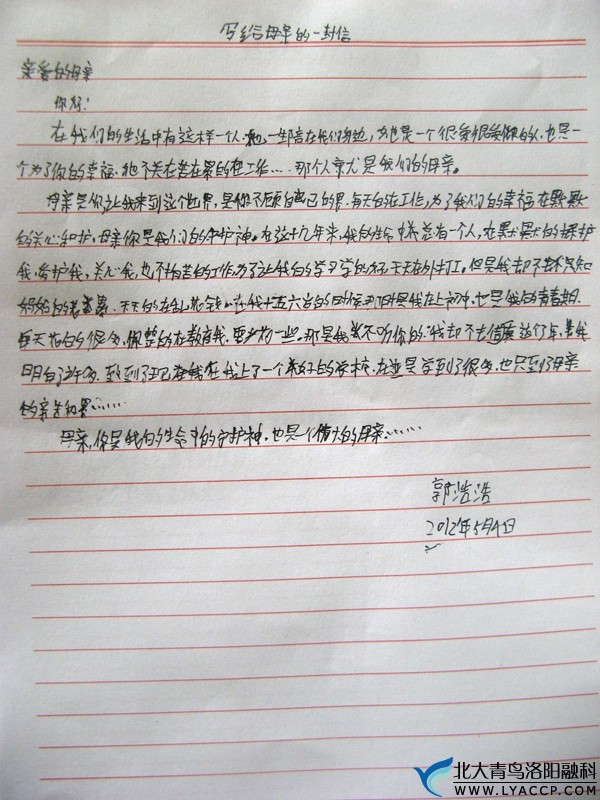 写给母亲的一封信
亲爱的母亲
你好!
在我们的生活中有这样一个人,她一部在我们身边,她也是一个很爱很爱你的人,也是一
个为了你的幸福,她不关在苦在累的在工作…那个人就是我们的母亲。
母亲是你让我来到这个世界,是你不顾自己的累,每天的在工作,为了我们的幸福,在默默
的关心和护,母亲你是我们的守护神。在这十九年来,我的生命中总有一个人,在默默的保护
我,爱护我,关心我,也不怕苦的工作,为了让我的学习学的好,天天在外打工,但是我却不知
妈妈的 天天的在乱花钱。在我十五六岁的时候那时是我在上初中,也是我的青春期
每天花的很多, 在教育我,要少花一些。那是我 不听你的,我却不去 这几年,是我
明白了许多, 到了现在我在我上了一个好的学校,在这里学到了很多,也 到了母亲
的亲苦和累……
母亲,你是我的生命中的守护神,也是个伟大的母亲……
郭浩浩
2012年5月4日
北大青鸟洛阳融科
WWW.LYACCP.COM